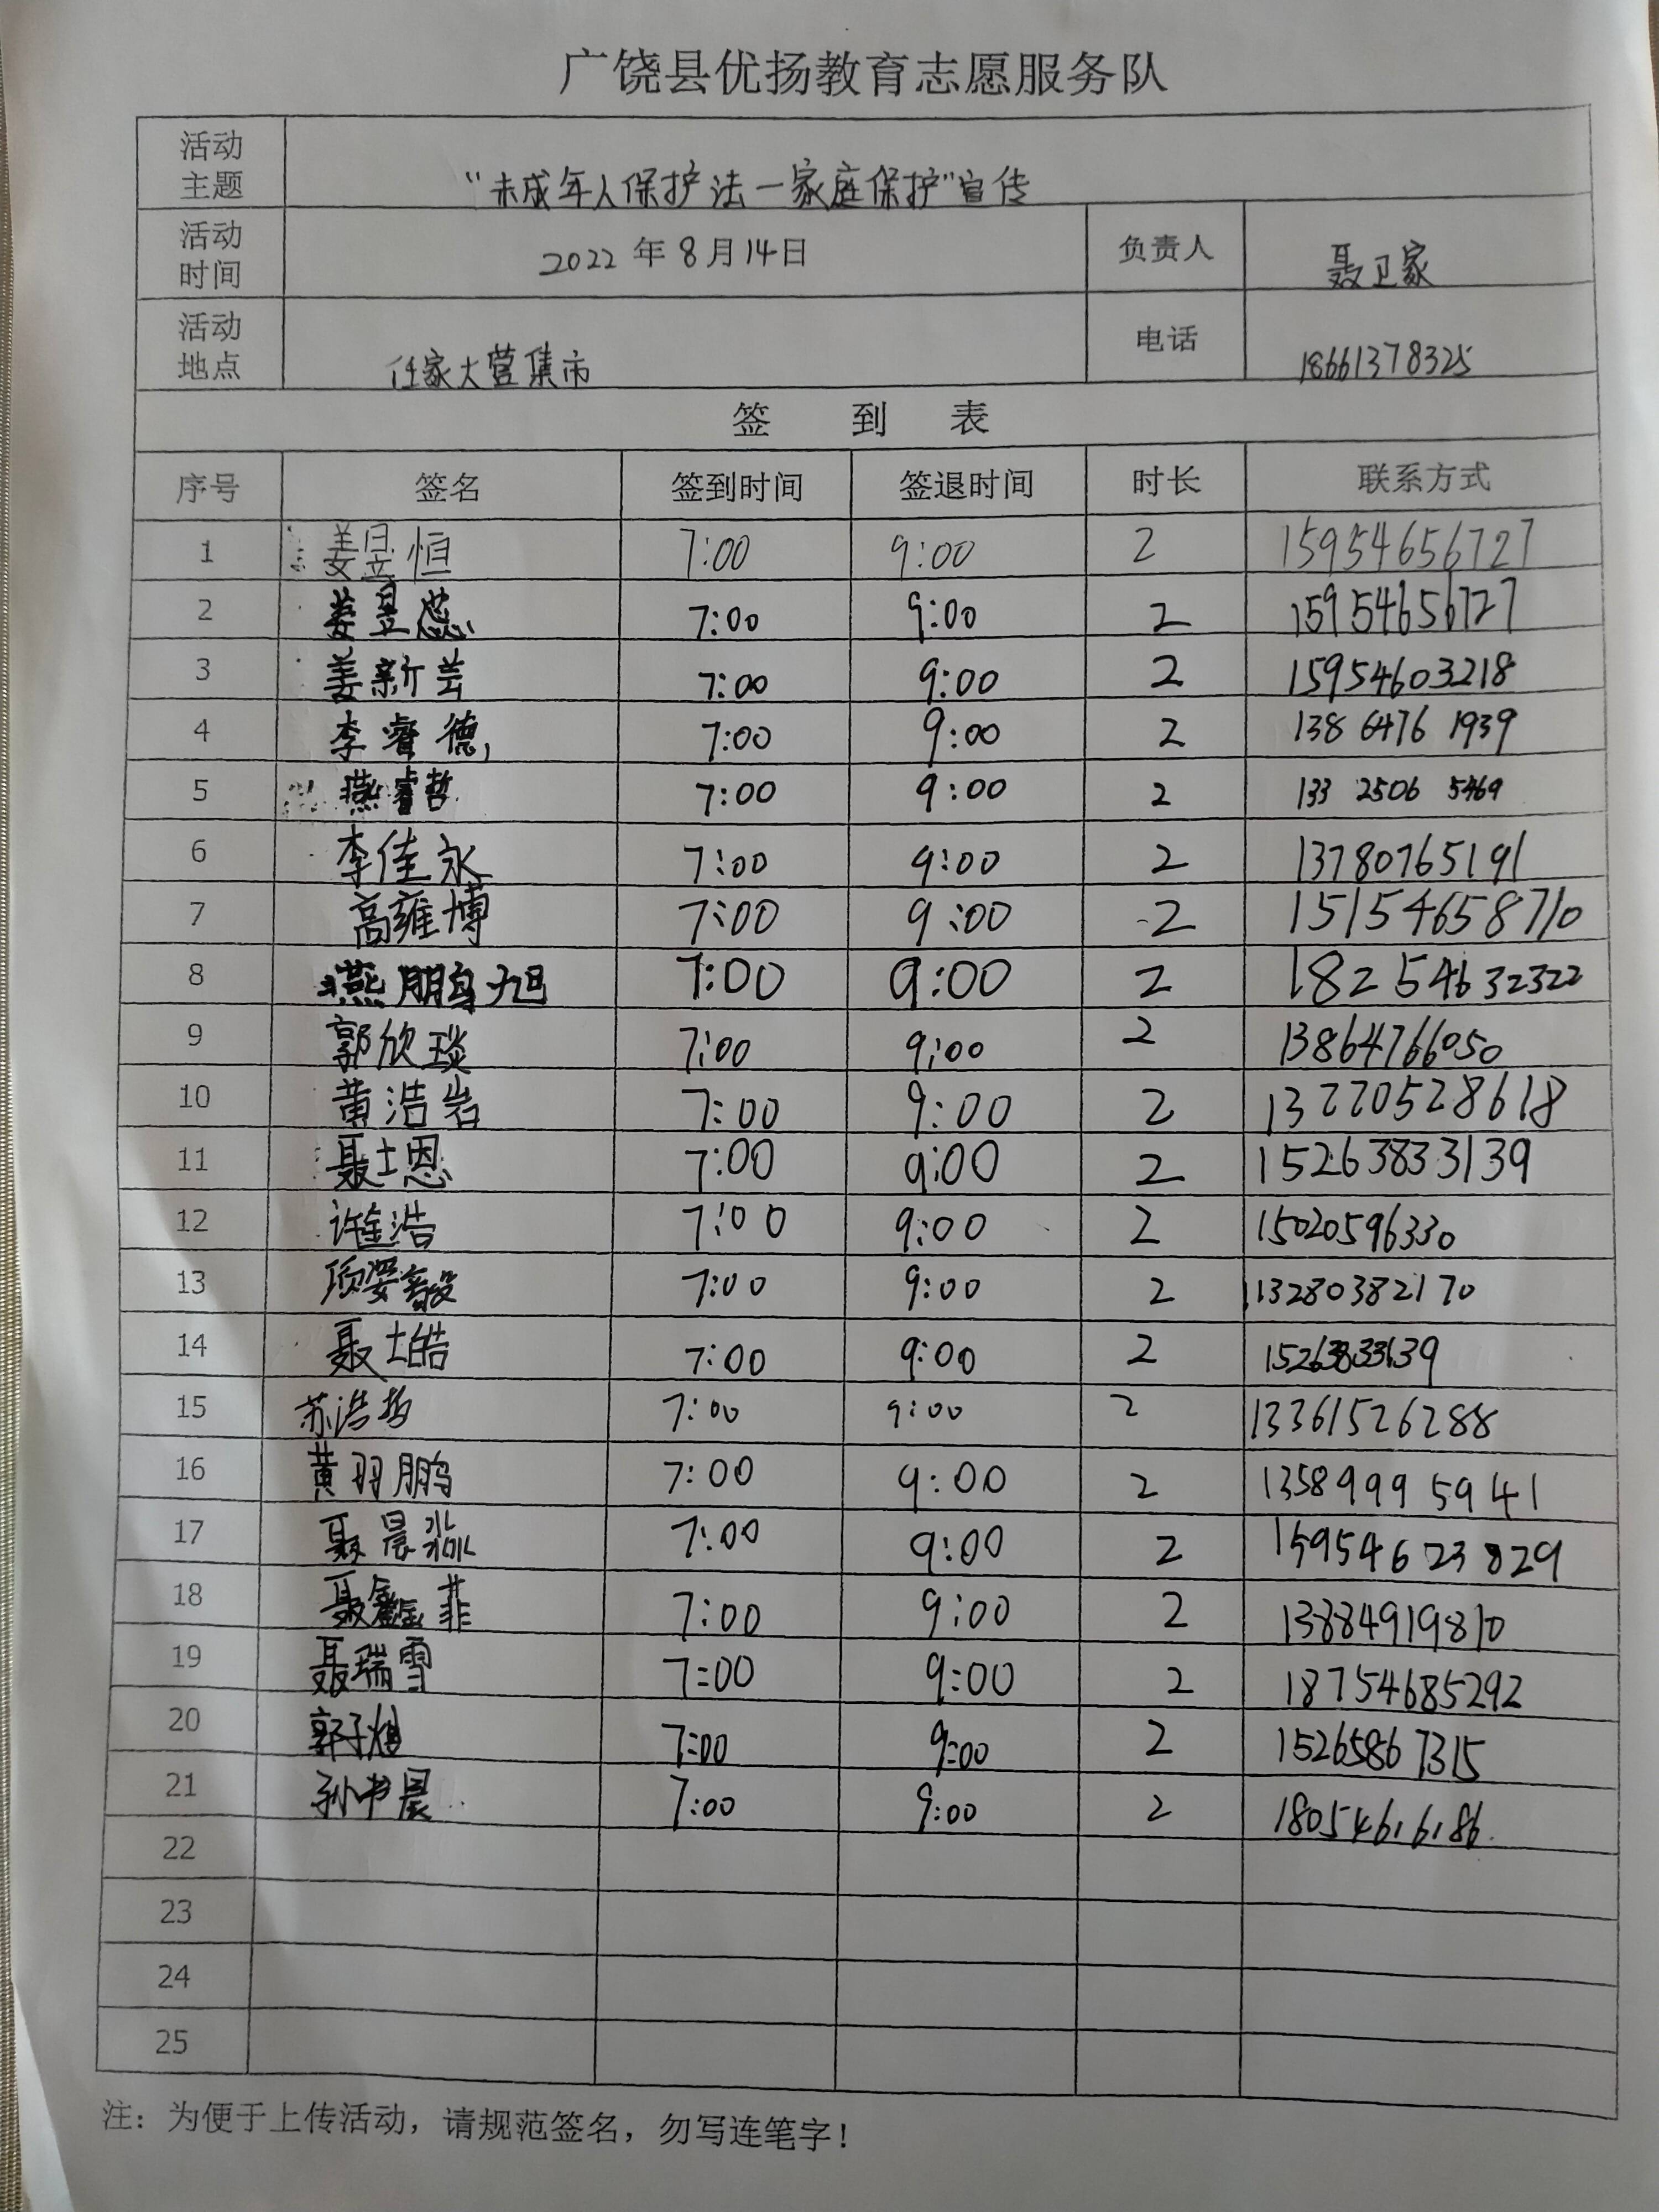 广饶县优扬教育志愿服务队
活动主题 "未成年人保护法一家庭保护"宣传
活动时间 2022年8月14日 负责人 聂卫家
活动地点 任家大营集市 电话 18661378325
签 到 表
序号 签名 签到时间 签退时间 时长 联系方式
1 姜昱恒 7:00 9:00 2 15954656727
2 姜昱蕊 7:00 9:00 2 15954656727
3 姜新芸 7:00 9:00 2 15954603218
4 李睿德 7:00 9:00 2 138 6476 1939
5 燕睿哲 7:00 9:00 2 133 2506 5469
6 李佳永 7:00 9:00 2 13780765191
7 高雍博 7:00 9:00 2 15154658710
8 燕鹏旭 7:00 9:00 2 18254632322
9 郭欣琰 7:00 9:00 2 13864766050
10 黄浩岩 7:00 9:00 2 13220528618
11 聂士恩 7:00 9:00 2 15263833139
12 浩 7:00 9:00 2 15020596330
13 7:00 9:00 2 13280382170
14 聂士皓 7:00 9:00 2 15263833139
15 苏浩 7:00 9:00 2 13361526288
16 黄羽鹏 7:00 9:00 2 13589995941
17 聂晨淼 7:00 9:00 2 15954623829
18 聂鑫菲 7:00 9:00 2 13884919810
19 聂瑞雪 7:00 9:00 2 18754685292
20 郭子 7:00 9:00 2 15265867315
21 孙书晨 7:00 9:00 2 18054616186
22
23
24
25
注：为便于上传活动，请规范签名，勿写连笔字！